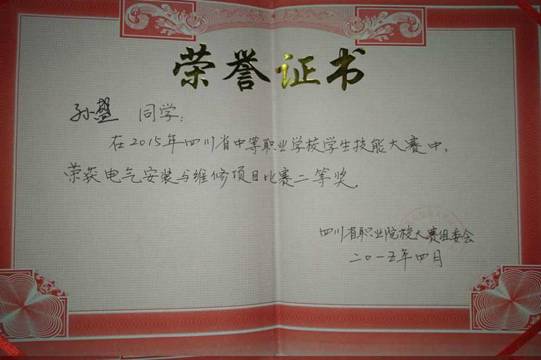 荣誉证书
孙盛 同学:
在2015年四川省中等职业学校学生技能大赛中,
荣获电气安装与维修项目比赛二等奖。
四川省职业院校大赛组委会
二〇一五年四月